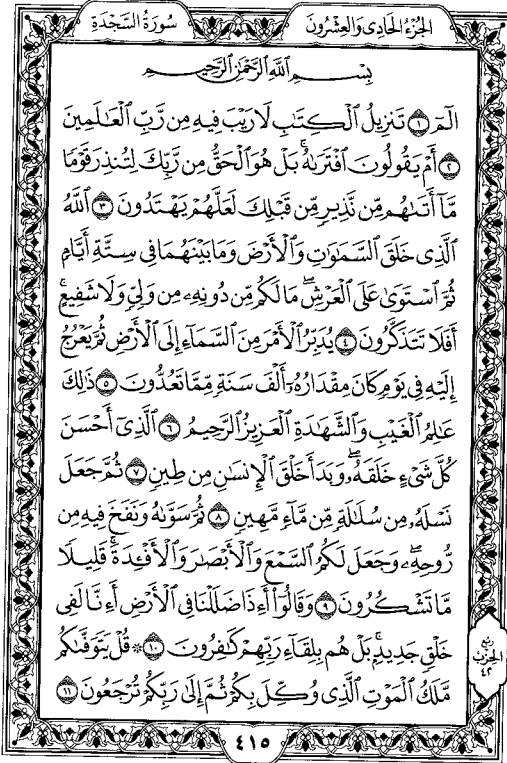 سُورَةُ السَّجْدَةِ
الجُزْءُ الحَادِى وَالعِشْرُونَ
بِسْمِ ٱللَّهِ ٱلرَّحْمَٰنِ ٱلرَّحِيمِ
الٓمٓ ١ تَنزِيلُ ٱلْكِتَٰبِ لَا رَيْبَ فِيهِ مِن رَّبِّ ٱلْعَٰلَمِينَ
٢ أَمْ يَقُولُونَ ٱفْتَرَىٰهُ ۚ بَلْ هُوَ ٱلْحَقُّ مِن رَّبِّكَ لِتُنذِرَ قَوْمًا
مَّآ أَتَىٰهُم مِّن نَّذِيرٍ مِّن قَبْلِكَ لَعَلَّهُمْ يَهْتَدُونَ ٣ ٱللَّهُ
ٱلَّذِى خَلَقَ ٱلسَّمَٰوَٰتِ وَٱلْأَرْضَ وَمَا بَيْنَهُمَا فِى سِتَّةِ أَيَّامٍ
ثُمَّ ٱسْتَوَىٰ عَلَى ٱلْعَرْشِ ۖ مَا لَكُم مِّن دُونِهِۦ مِن وَلِىٍّ وَلَا شَفِيعٍ ۚ
أَفَلَا تَتَذَكَّرُونَ ٤ يُدَبِّرُ ٱلْأَمْرَ مِنَ ٱلسَّمَآءِ إِلَى ٱلْأَرْضِ ثُمَّ يَعْرُجُ
إِلَيْهِ فِى يَوْمٍ كَانَ مِقْدَارُهُۥٓ أَلْفَ سَنَةٍ مِّمَّا تَعُدُّونَ ٥ ذَٰلِكَ
عَٰلِمُ ٱلْغَيْبِ وَٱلشَّهَٰدَةِ ٱلْعَزِيزُ ٱلرَّحِيمُ ٦ ٱلَّذِىٓ أَحْسَنَ
كُلَّ شَىْءٍ خَلَقَهُۥ ۖ وَبَدَأَ خَلْقَ ٱلْإِنسَٰنِ مِن طِينٍ ٧ ثُمَّ جَعَلَ
نَسْلَهُۥ مِن سُلَٰلَةٍ مِّن مَّآءٍ مَّهِينٍ ٨ ثُمَّ سَوَّىٰهُ وَنَفَخَ فِيهِ مِن
رُّوحِهِۦ ۖ وَجَعَلَ لَكُمُ ٱلسَّمْعَ وَٱلْأَبْصَٰرَ وَٱلْأَفْـِٔدَةَ ۚ قَلِيلًا
مَّا تَشْكُرُونَ ٩ وَقَالُوٓا۟ أَءِذَا ضَلَلْنَا فِى ٱلْأَرْضِ أَءِنَّا لَفِى
خَلْقٍ جَدِيدٍۭ ۚ بَلْ هُم بِلِقَآءِ رَبِّهِمْ كَٰفِرُونَ ١٠ ۞ قُلْ يَتَوَفَّىٰكُم
مَّلَكُ ٱلْمَوْتِ ٱلَّذِى وُكِّلَ بِكُمْ ثُمَّ إِلَىٰ رَبِّكُمْ تُرْجَعُونَ ١١
ربع
الحزب
٤٢
٤١٥